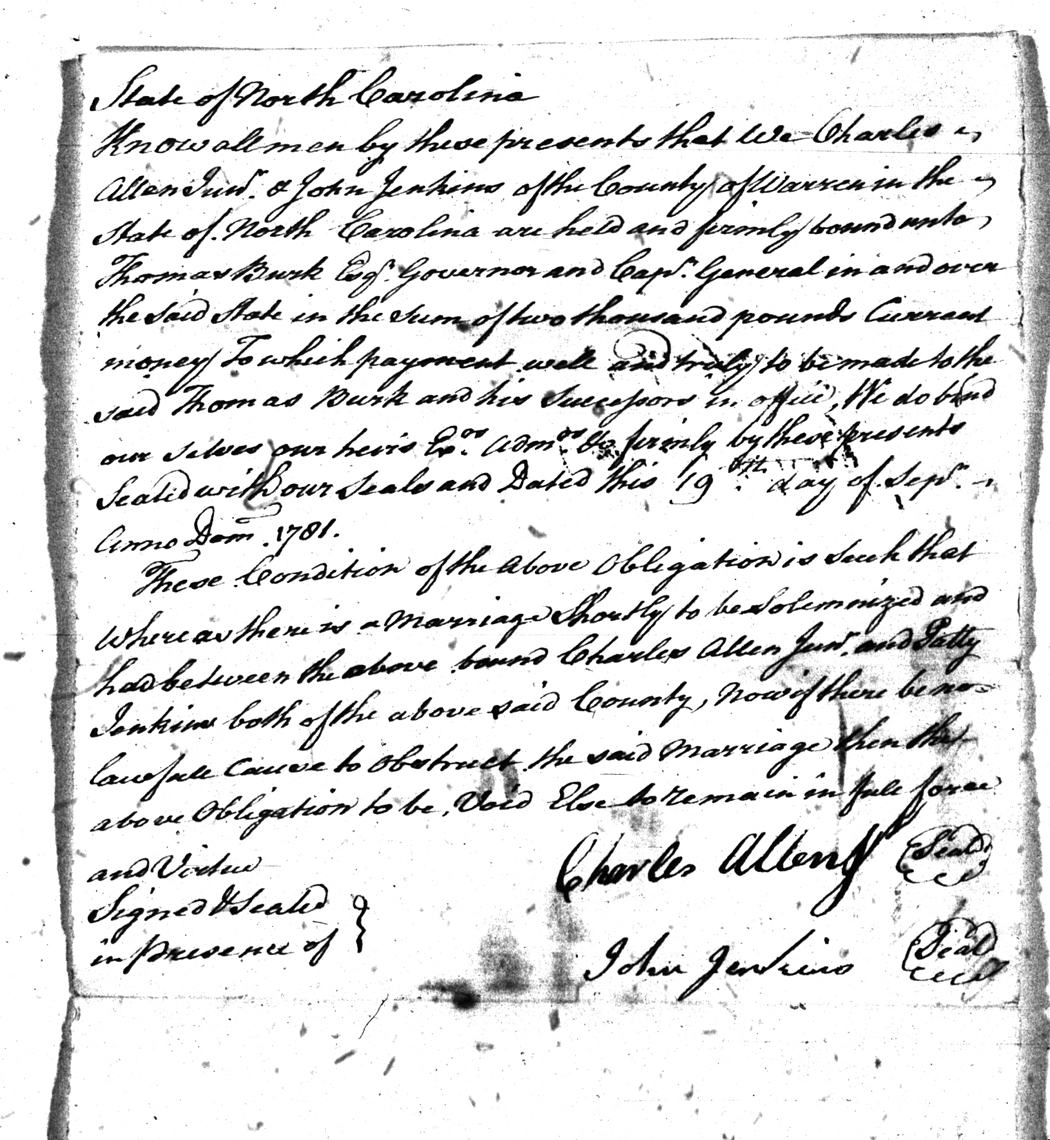 State of North Carolina
Know all men by these presents that We Charles
Allen Junr. & John Jenkins of the County of Warren in the
State of North Carolina are held and firmly bound unto
Thomas Burk Esqr. Governor and Capn. General in and over
the said State in the sum of two thousand pounds Currant
money To which payment well and truly to be made to the
said Thomas Burk and his Successors in office, We do bind
our selves our heirs Exors. Admors. &c firmly by these presents
Sealed with our Seals and Dated this 19th day of Sepr.
Anno Dom. 1781.
These Condition of the Above Obligation is Such that
Whereas there is a Marriage Shortly to be Solemnized and
had between the above bound Charles Allen Junr. and Patty
Jenkins both of the above said County, Now if there be no
lawfull Cause to Obstruct the said Marriage then the
above Obligation to be Void Else to remain in full force
and Virtue
Signed & Sealed
in presence of
Charles Allen J Seal
John Jenkins Seal